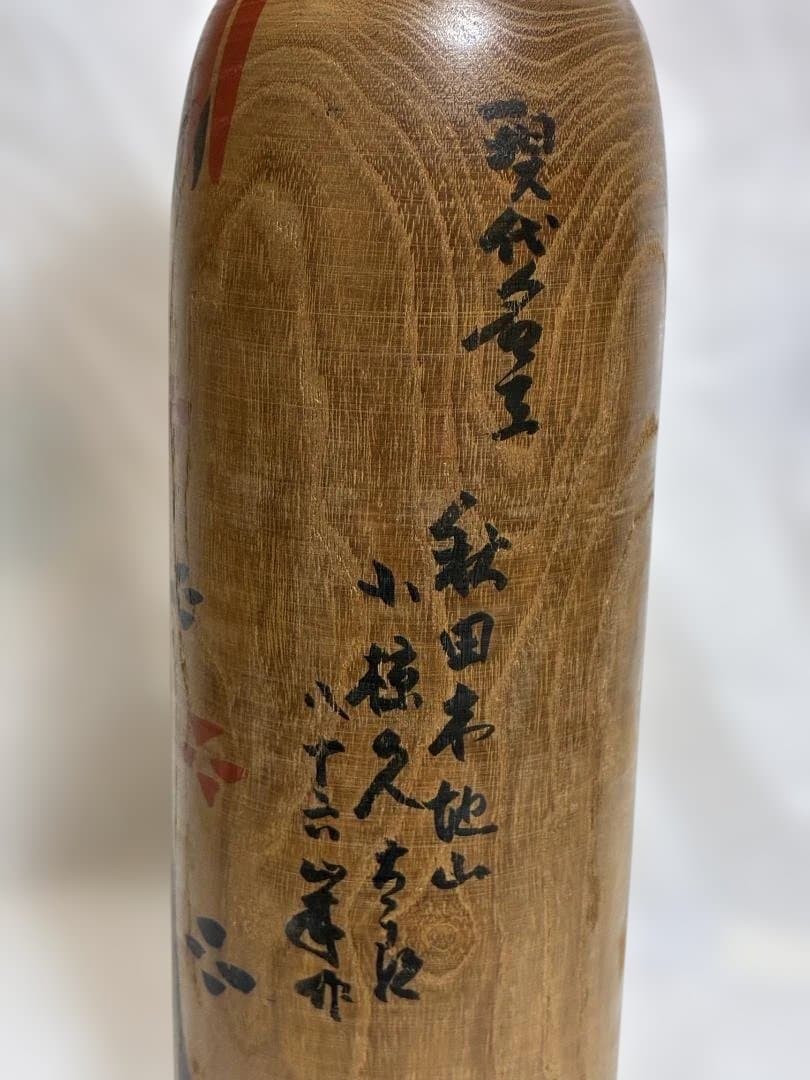 現代名工
秋田木地山
小椋久太郎
八十六歳作